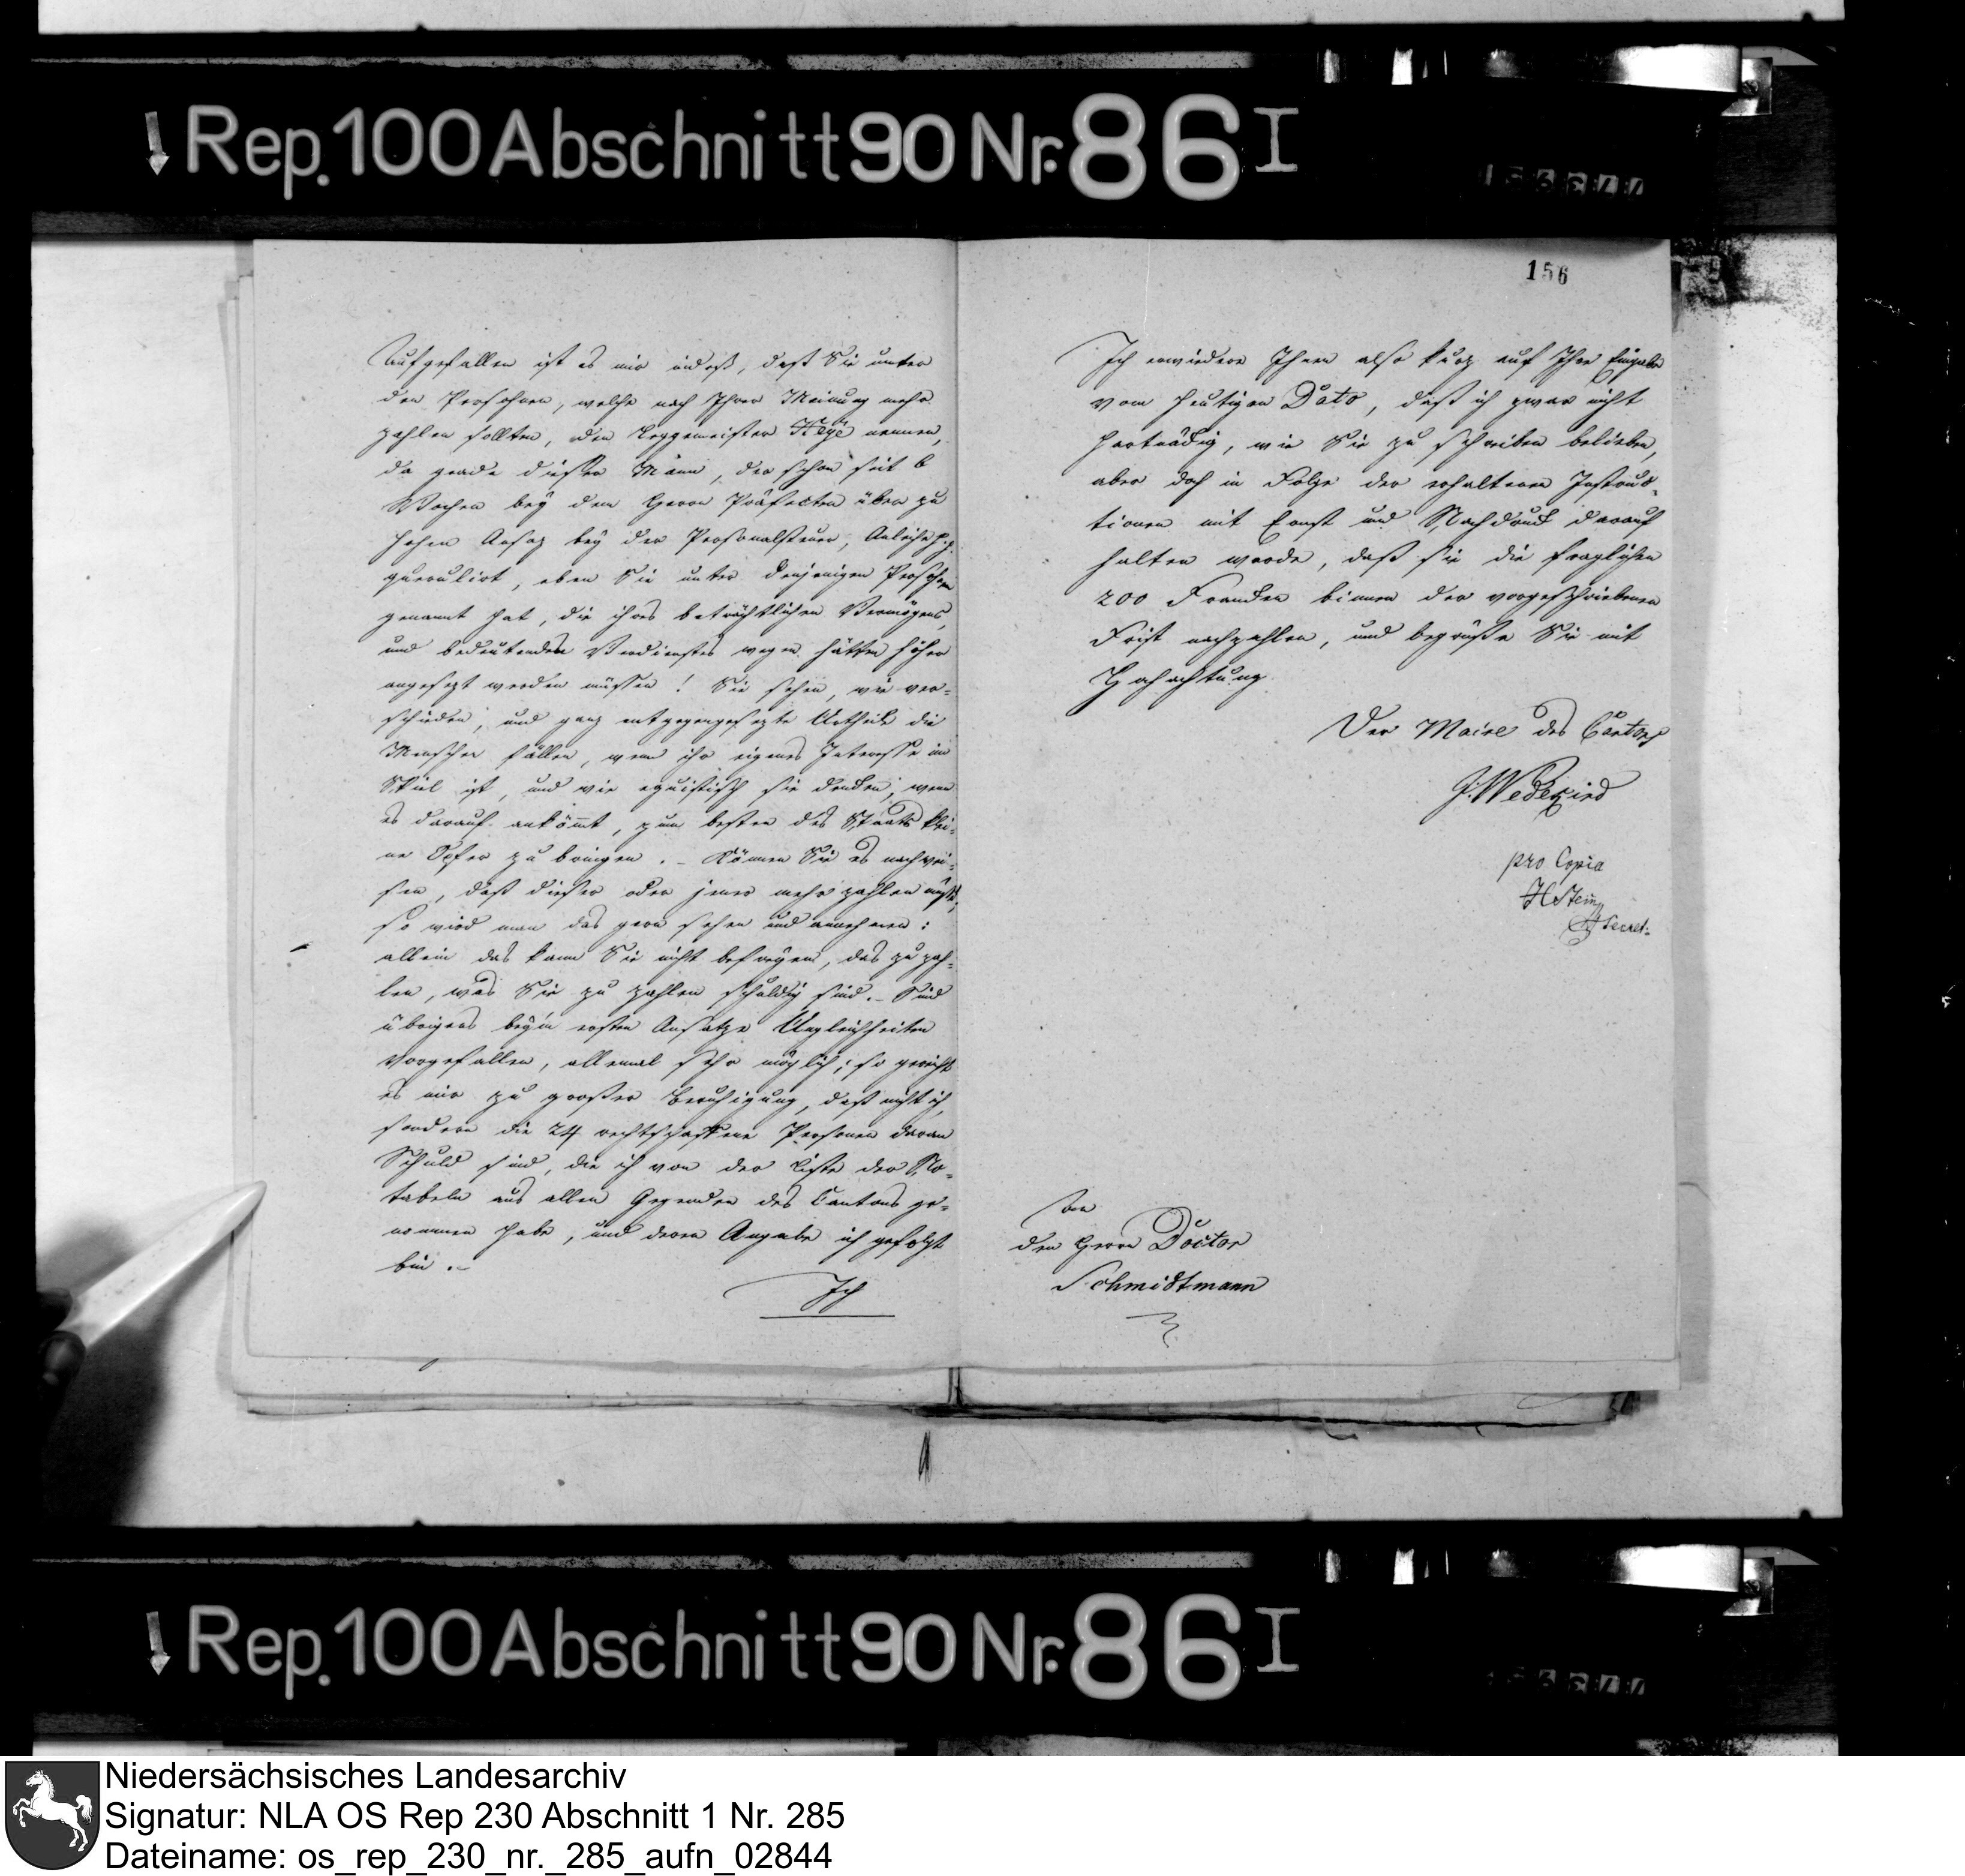 Rep. 100 Abschnitt 90 Nr. 86 I
156
Aufgefallen ist es mir indeß, daß Sie unter
den Personen, welche nach Ihrer Meinung mehr
zahlen sollten, den Leggemeister Heye nennen,
da grade dieser Mann, der schon seit 6
Wochen bey dem Herrn Präfecten über zu
hohen Ansaz bey der Personalsteuer, Anleihe p.p.
querulirt, eben Sie unter denjenigen Persohnen
genannt hat, die ihres beträchtlichen Vermögens,
und bedeutenden Verdienstes wegen hätten höher
angesezt werden müssen! Sie sehen, wie ver-
schieden, und ganz entgegengesezte Urtheile die
Menschen fällen, wenn ihr eigenes Interesse im
Spiel ist, und wie eguistisch sie denken, wenn
es darauf ankömt, zum besten des Staats klei-
ne Opfer zu bringen. – Können Sie es nachwei-
sen, daß dieser oder jener mehr zahlen müßte,
so wird man das gern sehen und annehmen:
allein das kann Sie nicht befreyen, das zu zah-
len, was Sie zu zahlen schuldig sind. – Sind
übrigens beym ersten Ansatze Ungleichheiten
vorgefallen, allemal sehr möglich; so gereicht
es mir zu großer Beruhigung, daß nicht ich,
sondern die 24 rechtschaffene Personen daran
Schuld sind, die ich von der Liste der No-
tabeln aus allen Gegenden des Cantons ge-
nommen habe, und deren Angabe ich gefolgt
bin. –
Ich
Ich erwiedere Ihnen also kurz auf Ihre Eingabe
vom heutigen Dato, daß ich zwar nicht
hartnäckig, wie Sie zu schreiben belieben,
aber doch in Folge der erhaltenen Instruc-
tionen mit Ernst und Nachdruck darauf
halten werde, daß sie die fraglichen
200 Franken binnen der vorgeschriebenen
Frist nachzahlen, und begrüße Sie mit
Hochachtung
Der Maire des Cantons
J. Wedekind
pro Copia
HStein
Secret.
An
den Herrn Doctor
Schmidtmann
Rep. 100 Abschnitt 90 Nr. 86 I
Niedersächsisches Landesarchiv
Signatur: NLA OS Rep 230 Abschnitt 1 Nr. 285
Dateiname: os_rep_230_nr._285_aufn_02844